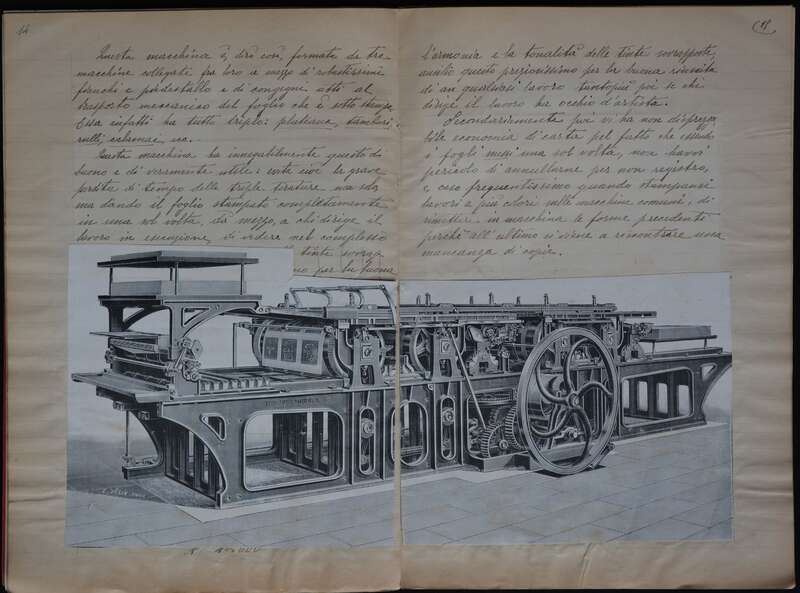 14
Questa macchina è, dirò così, formata da tre
macchine collegate fra loro a mezzo di robustissimi
fianchi e piedestallo e di congegni atti al
trasporto meccanico del foglio che è sotto stampa.
Essa infatti ha tutto triplo: platina, tamburi,
rulli, calamai, ecc.
Questa macchina ha innegabilmente questo di
buono e di veramente utile: evita cioè la grave
perdita di tempo delle triple tirature, ma sola
ma dando il foglio stampato completamente
in una sol volta, dà mezzo, a chi dirige il
lavoro in esecuzione, di vedere nel complesso
tinte sovrap
no per la buona
15
l'armonia e la tonalità delle tinte sovrapposte,
ausilio questo preziosissimo per la buona riuscita
di un qualsiasi lavoro tantopiù poi se chi
dirige il lavoro ha occhio d'artista.
Secondariamente poi vi ha non disprezza
bile economia di carta pel fatto che essendo
i fogli messi una sol volta, non havvi
pericolo di annullarne per non registro,
e caso frequentissimo quando stampansi
lavori a più colori sulle macchine comuni, di
rimettere in macchina le forme precedenti
perchè all'ultimo si viene a riscontrare una
mancanza di copie.